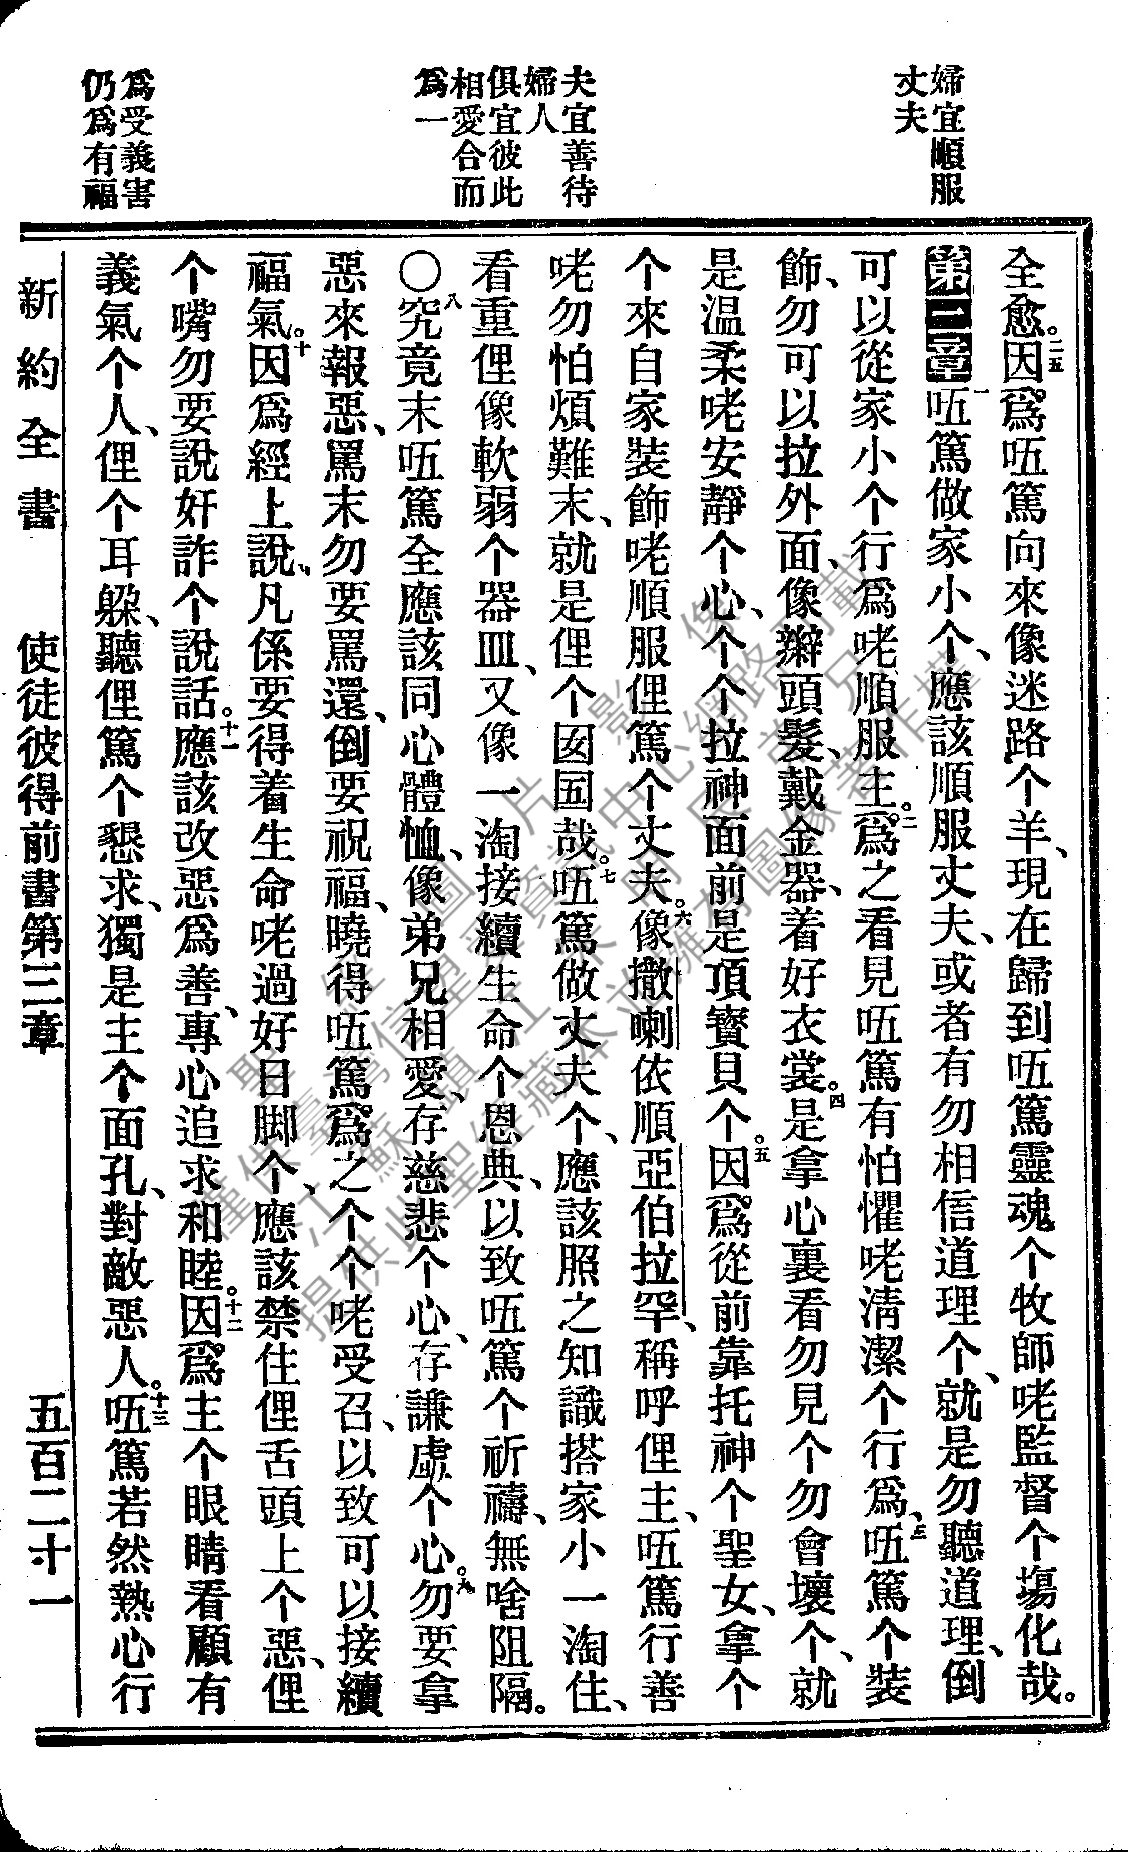 婦宜順服
丈夫
夫宜善待
婦人
俱宜彼此
相愛合而
爲一
爲受義害
仍爲有福
全愈。二五因爲㕶篤向來像迷路个羊、現在歸到㕶篤靈魂个牧師咾監督个塲化哉。
第三章一㕶篤做家小个、應該順服丈夫、或者有勿相信道理个、就是勿聽道理、倒
可以從家小个行爲咾順服主。二爲之看見㕶篤有怕懼咾淸潔个行爲、三㕶篤个裝
飾、勿可以拉外面、像辮頭髮、戴金器、着好衣裳。四是拿心裏看勿見个勿會壞个、就
是温柔咾安靜个心、个个拉神面前是頂寶貝个。五因爲從前靠托神个聖女、拿个
个來自家裝飾咾順服俚篤个丈夫。六像撒喇依順亞伯拉罕、稱呼俚主、㕶篤行善
咾勿怕煩難末、就是俚个囡囝哉。七㕶篤做丈夫个、應該照之知識搭家小一淘住、
看重俚像軟弱个器皿、又像一淘接續生命个恩典、以致㕶篤个祈禱、無啥阻隔。
〇八究竟末㕶篤全應該同心體恤、像弟兄相愛、存慈悲个心、存謙虛个心。九勿要拿
惡來報惡、罵末勿要罵還、倒要祝福、曉得㕶篤爲之个个咾受召、以致可以接續
福氣。十因爲經上說、凡係要得着生命咾過好日脚个、應該禁住俚舌頭上个惡、俚
个嘴勿要說奸詐个說話。十一應該改惡爲善、專心追求和睦。十二因爲主个眼睛看顧有
義氣个人、俚个耳朶、聽俚篤个懇求、獨是主个面孔、對敵惡人。十三㕶篤若然熱心行
新約全書　使徒彼得前書第三章　五百二十一
聖經圖片影像
僅供臺灣信望愛資訊中心網路刊載
江蘇鎮江
提供此聖經藏本並擁有圖像著作權